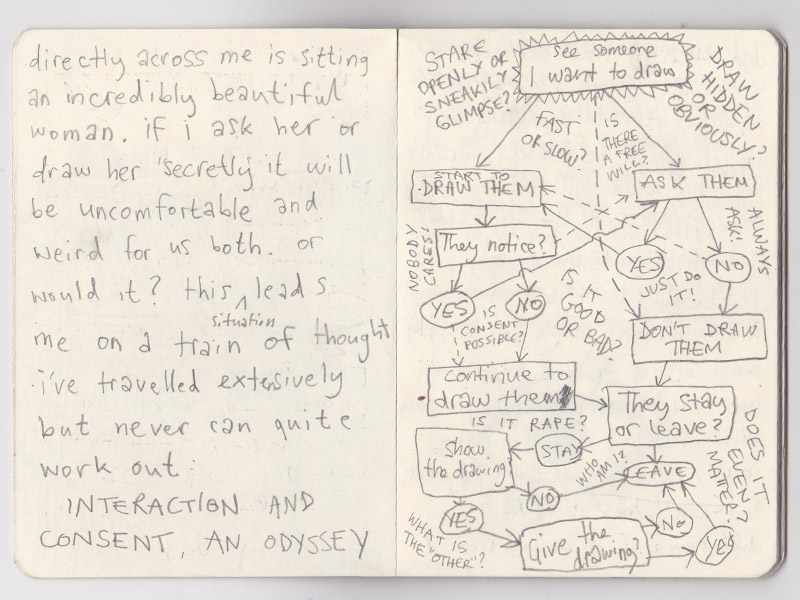 directly across me is sitting
an incredibly beautiful
woman. if i ask her or
draw her "secretly" it will
be uncomfortable and
weird for us both. or
would it? this leads
situation
me on a train of thought
i've travelled extensively
but never can quite
work out:
INTERACTION AND
CONSENT, AN ODYSSEY
STARE
OPENLY OR
SNEAKILY
GLIMPSE?
see someone
I want to draw
DRAW
HIDDEN
OR
OBVIOUSLY?
FAST
OR SLOW?
IS
THERE
A FREE
WILL?
START TO
DRAW THEM
ASK THEM
NOBODY
CARES!
They notice?
ALWAYS
ASK!
YES
NO
JUST DO
IT!
YES
NO
IS
CONSENT
POSSIBLE?
IS IT
GOOD
OR BAD?
DON'T DRAW
THEM
continue to
draw them
They stay
or leave?
IS IT RAPE?
show
the drawing
STAY
WHO
AM I?
LEAVE
DOES IT
EVEN
MATTER?
NO
YES
WHAT IS
THE "OTHER"?
Give the
drawing?
NO
YES